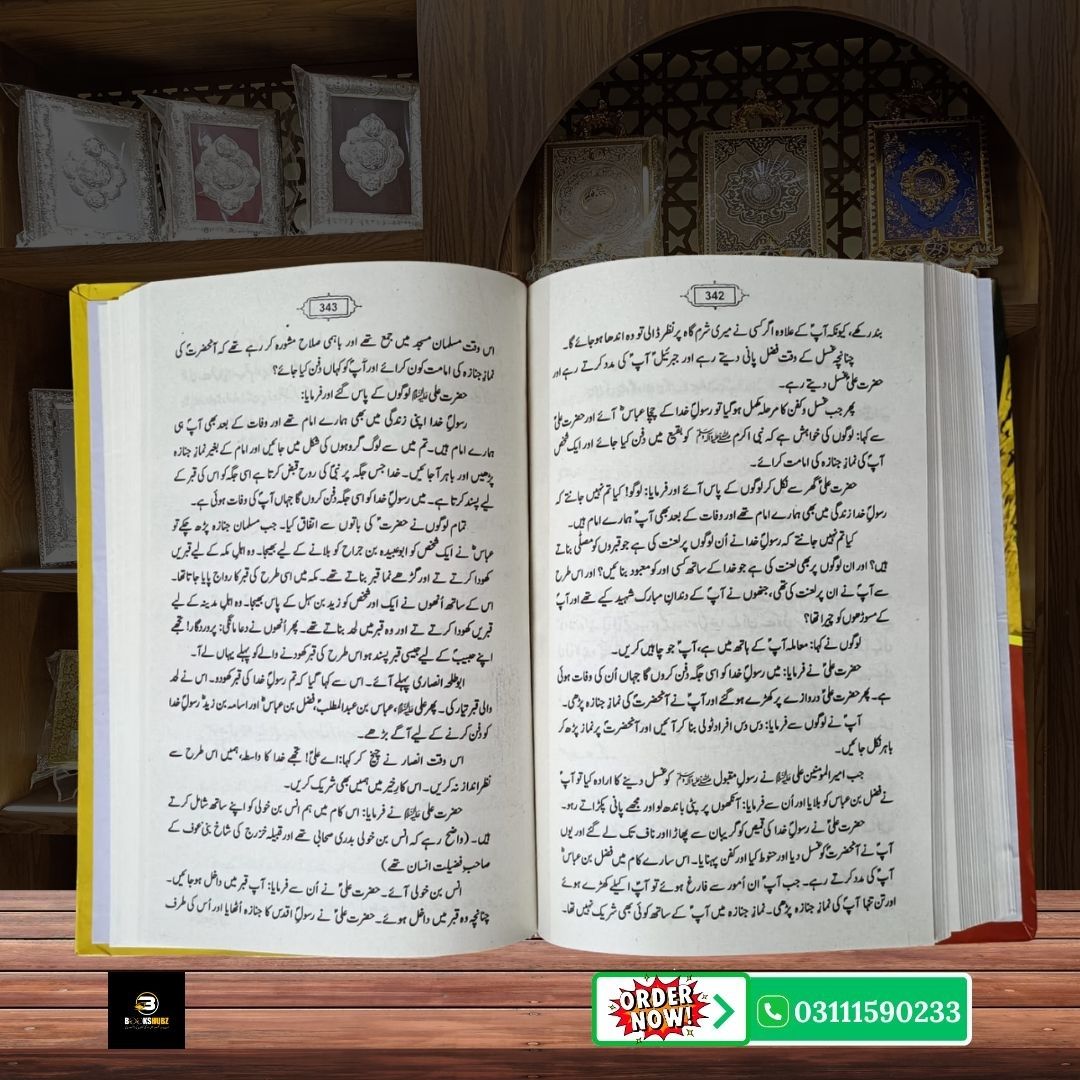 342
بند رکھے، کیونکہ آپؐ کے علاوہ اگر کسی نے میری شرم گاہ پر نظر ڈالی تو وہ اندھا ہو جائے گا۔
چنانچہ غسل کے وقت فضل پانی دیتے رہے اور جبرئیلؑ آپؐ کی مدد کرتے رہے اور
حضرت علیؑ غسل دیتے رہے۔
پھر جب غسل و کفن کا مرحلہ مکمل ہو گیا تو رسولِ خدا کے چچا عباسؓ آئے اور حضرت علیؑ
سے کہا: لوگوں کی خواہش ہے کہ نبی اکرم ﷺ کو بقیع میں دفن کیا جائے اور ایک شخص
آپؐ کی نمازِ جنازہ کی امامت کرائے۔
حضرت علیؑ گھر سے نکل کر لوگوں کے پاس آئے اور فرمایا: لوگو! کیا تم نہیں جانتے کہ
رسولِ خدا زندگی میں بھی ہمارے امام تھے اور وفات کے بعد بھی آپؐ ہمارے امام ہیں۔
کیا تم نہیں جانتے کہ رسولِ خدا نے اُن لوگوں پر لعنت کی ہے جو قبروں کو مصلّٰی بناتے
ہیں؟ اور ان لوگوں پر بھی لعنت کی ہے جو خدا کے ساتھ کسی اور کو معبود بنائیں؟ اور اس طرح
سے آپؐ نے ان پر لعنت کی تھی، جنھوں نے آپؐ کے دندانِ مبارک شہید کیے تھے اور آپؐ
کے مسوڑھوں کو چیرا تھا؟
لوگوں نے کہا: معاملہ آپؑ کے ہاتھ میں ہے، آپؑ جو چاہیں کریں۔
حضرت علیؑ نے فرمایا: میں رسولِ خدا کو اسی جگہ دفن کروں گا جہاں اُن کی وفات ہوئی
ہے۔ پھر حضرت علیؑ دروازے پر کھڑے ہو گئے اور آپؑ نے آنحضرتؐ کی نمازِ جنازہ پڑھی۔
آپؑ نے لوگوں سے فرمایا: دس دس افراد ٹولی بنا کر آئیں اور آنحضرتؐ پر نماز پڑھ کر
باہر نکل جائیں۔
جب امیرالمومنین علی علیہ السلام نے رسولِ مقبول ﷺ کو غسل دینے کا ارادہ کیا تو آپؑ
نے فضل بن عباس کو بلایا اور اُن سے فرمایا: آنکھوں پر پٹی باندھ لو اور مجھے پانی پکڑاتے رہو۔
حضرت علیؑ نے رسولِ خدا کی قمیص کو گریبان سے پھاڑا اور ناف تک لے گئے اور یوں
آپؑ نے آنحضرتؐ کو غسل دیا اور حنوط کیا اور کفن پہنایا۔ اس سارے کام میں فضل بن عباسؓ
آپؑ کی مدد کرتے رہے۔ جب آپؑ ان اُمور سے فارغ ہوئے تو آپؑ اکیلے کھڑے ہوئے
اور تن تنہا آپؐ کی نمازِ جنازہ پڑھی۔ نمازِ جنازہ میں آپؑ کے ساتھ کوئی بھی شریک نہیں تھا۔
343
اس وقت مسلمان مسجد میں جمع تھے اور باہمی صلاح مشورہ کر رہے تھے کہ آنحضرتؐ کی
نمازِ جنازہ کی امامت کون کرائے اور آپؐ کو کہاں دفن کیا جائے؟
حضرت علی علیہ السلام لوگوں کے پاس گئے اور فرمایا:
رسولِ خدا اپنی زندگی میں بھی ہمارے امام تھے اور وفات کے بعد بھی آپؐ ہی
ہمارے امام ہیں۔ تم میں سے لوگ گروہوں کی شکل میں جائیں اور امام کے بغیر نمازِ جنازہ
پڑھیں اور باہر آ جائیں۔ خدا جس جگہ پر نبیؐ کی روح قبض کرتا ہے اسی جگہ کو اس کی قبر کے
لیے پسند کرتا ہے۔ میں رسولِ خدا کو اسی جگہ دفن کروں گا جہاں آپؐ کی وفات ہوئی ہے۔
تمام لوگوں نے حضرتؑ کی باتوں سے اتفاق کیا۔ جب مسلمان جنازہ پڑھ چکے تو
عباسؓ نے ایک شخص کو ابوعبیدہ بن جراح کو بلانے کے لیے بھیجا۔ وہ اہلِ مکہ کے لیے قبریں
کھودا کرتے تے اور گڑھے نما قبر بناتے تھے۔ مکہ میں اسی طرح کی قبر کا رواج پایا جاتا تھا۔
اس کے ساتھ اُنھوں نے ایک اور شخص کو زید بن سہل کے پاس بھیجا۔ وہ اہلِ مدینہ کے لیے
قبریں کھودا کرتے تے اور وہ قبر میں لحد بناتے تھے۔ پھر اُنھوں نے دعا مانگی: پروردگار! تجھے
اپنے حبیبؐ کے لیے جیسی قبر پسند ہو اس طرح کی قبر کھودنے والے کو پہلے یہاں لے آ۔
ابوطلحہ انصاری پہلے آئے۔ اس سے کہا گیا کہ تم رسولِ خدا کی قبر کھودو۔ اس نے لحد
والی قبر تیار کی۔ پھر علی علیہ السلام، عباس بن عبدالمطلبؓ، فضل بن عباسؓ اور اسامہ بن زیدؓ رسولِ خدا
کو دفن کرنے کے لیے آگے بڑھے۔
اس وقت انصار نے چیخ کر کہا: اے علیؑ! تجھے خدا کا واسطہ، ہمیں اس طرح سے
نظر انداز نہ کریں۔ اس کارِ خیر میں ہمیں بھی شریک کریں۔
حضرت علی علیہ السلام نے فرمایا: اس کام میں ہم انس بن خولی کو اپنے ساتھ شامل کرتے
ہیں۔ (واضح رہے کہ انس بن خولی بدری صحابی تھے اور قبیلہ خزرج کی شاخ بنی عوف کے
صاحبِ فضیلت انسان تھے)
انس بن خولی آئے۔ حضرت علیؑ نے اُن سے فرمایا: آپ قبر میں داخل ہو جائیں۔
چنانچہ وہ قبر میں داخل ہوئے۔ حضرت علیؑ نے رسولِ اقدس کا جنازہ اُٹھایا اور اُس کی طرف
BOOKSHUBZ
ORDER
NOW!
03111590233